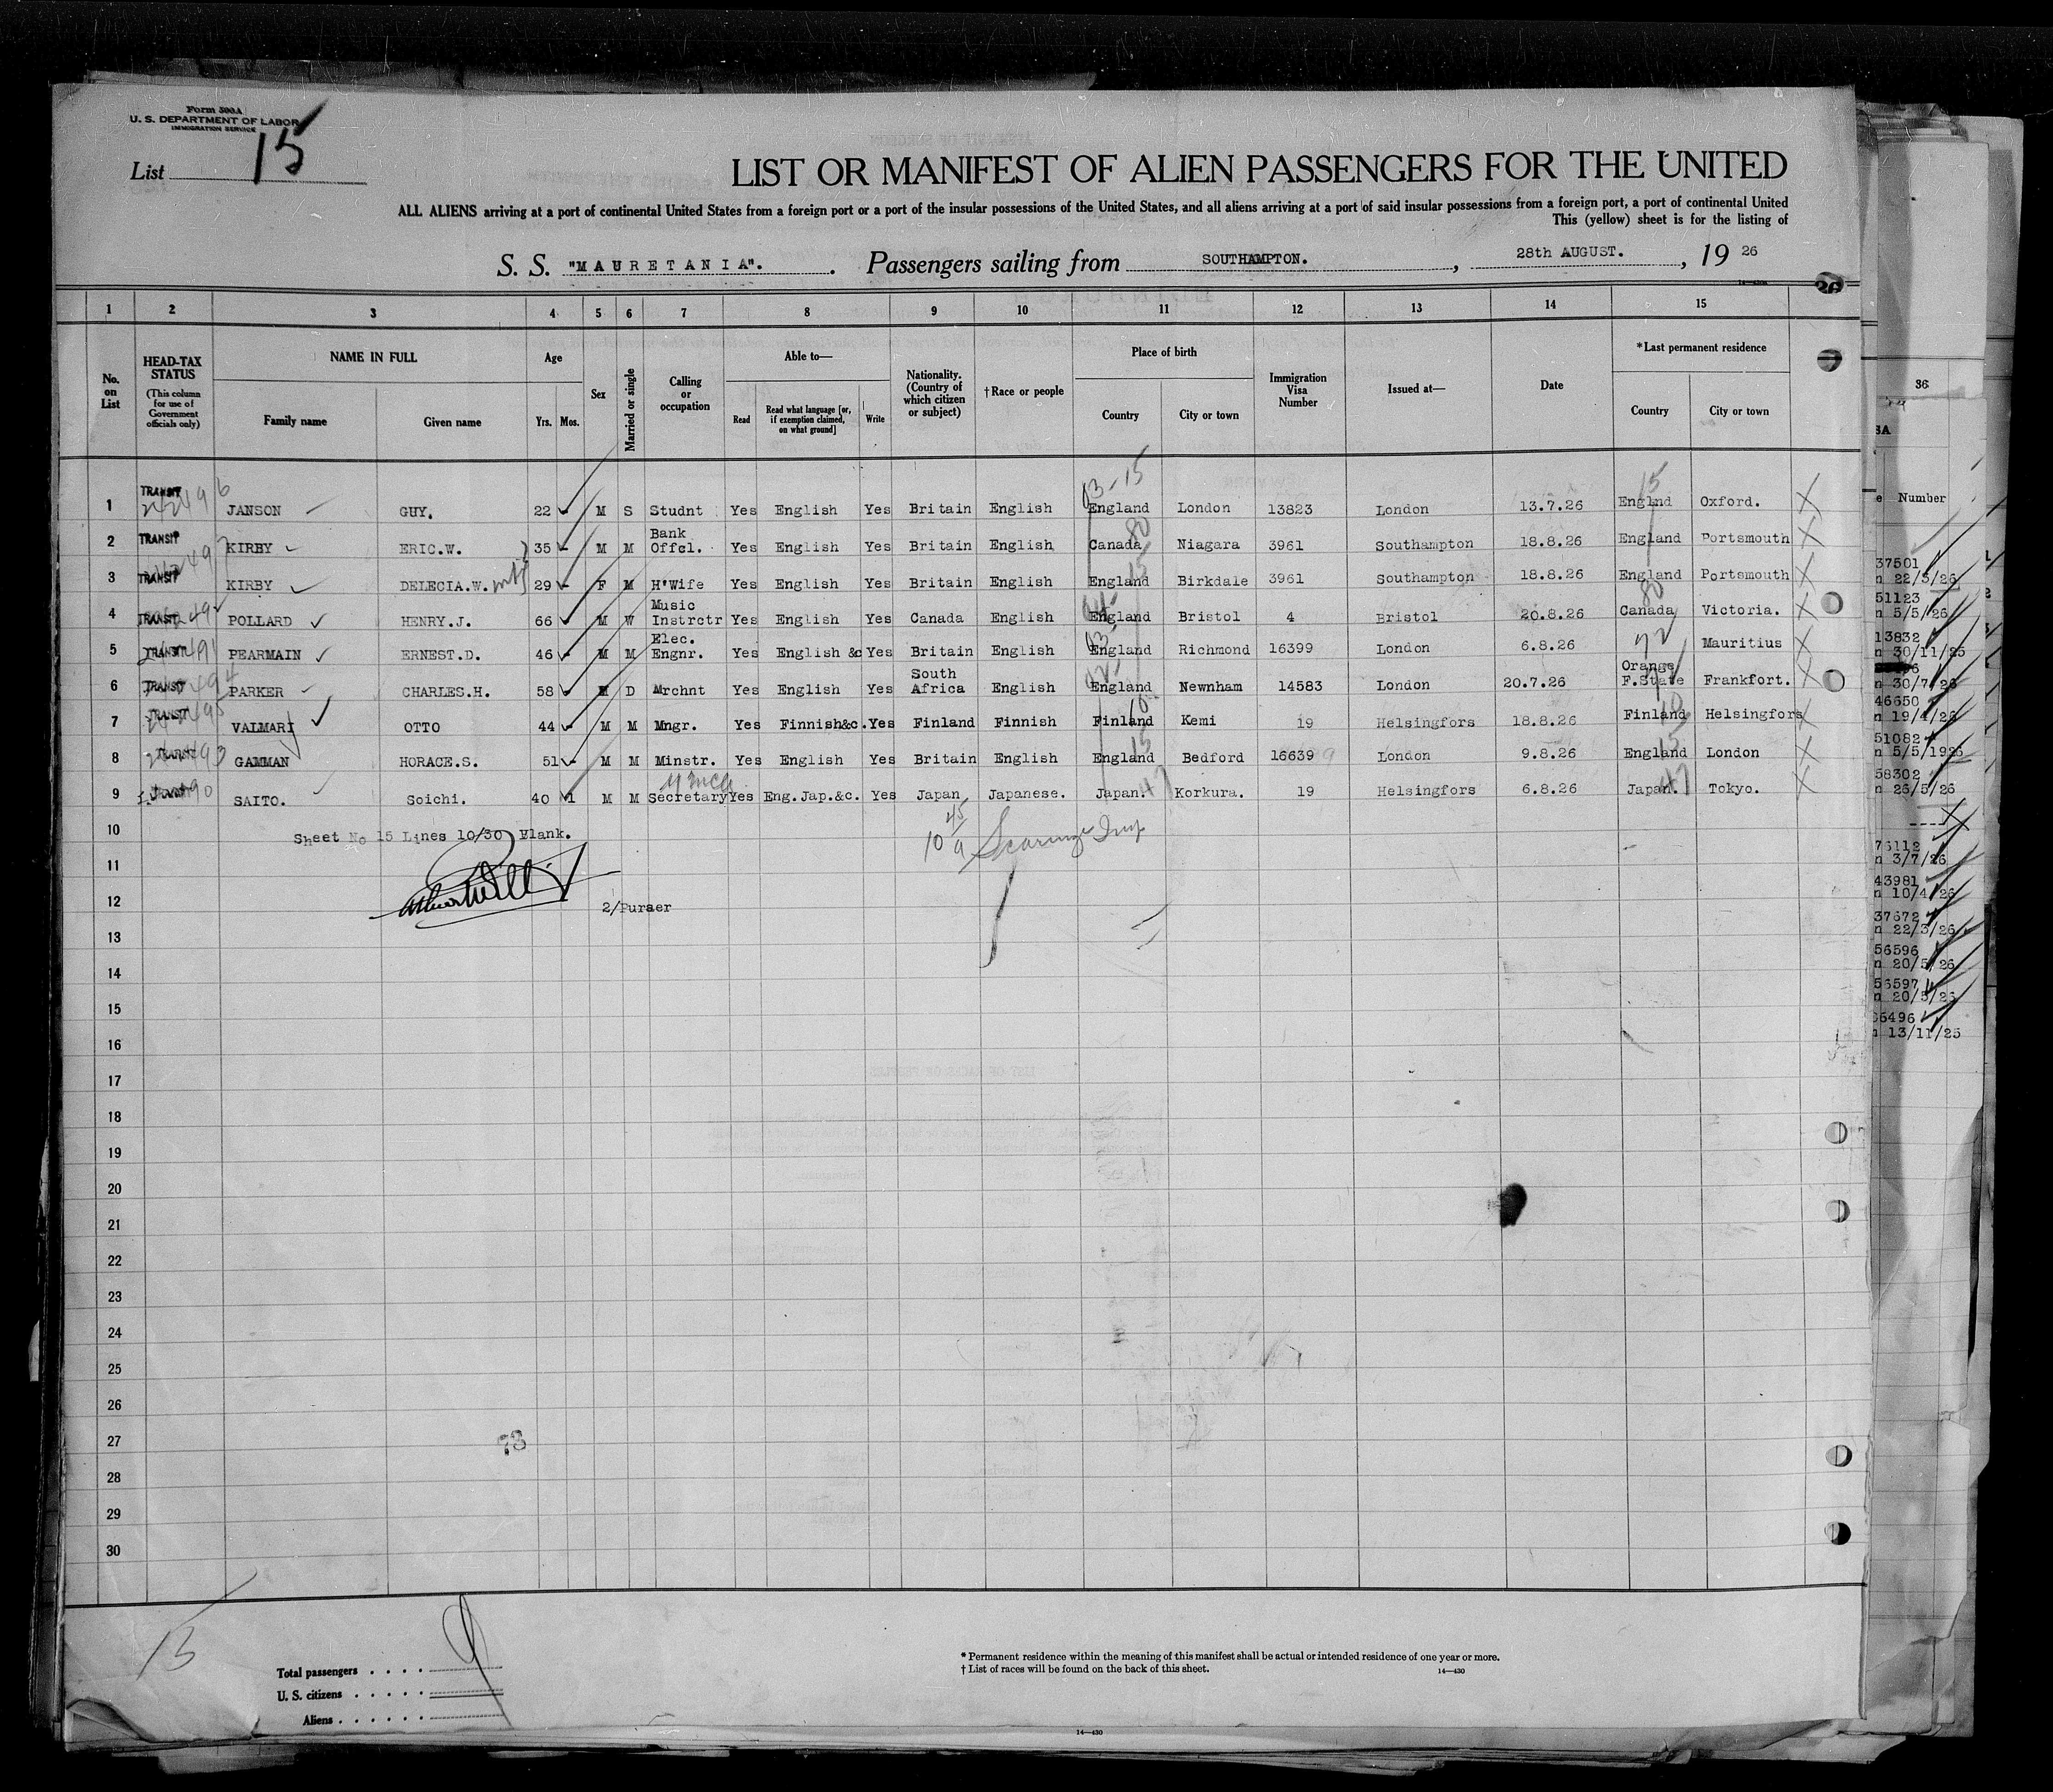 Form 500A
U. S. DEPARTMENT OF LABOR
IMMIGRATION SERVICE
List 15
LIST OR MANIFEST OF ALIEN PASSENGERS FOR THE UNITED
ALL ALIENS arriving at a port of continental United States from a foreign port or a port of the insular possessions of the United States, and all aliens arriving at a port of said insular possessions from a foreign port, a port of continental United
This (yellow) sheet is for the listing of
S. S. "MAURETANIA". Passengers sailing from SOUTHAMPTON. , 28th AUGUST. , 19 26
1 2 3 4 5 6 7 8 9 10 11 12 13 14 15
No. on List
HEAD-TAX STATUS (This column for use of Government officials only)
NAME IN FULL Family name Given name
Age Yrs. Mos.
Sex
Married or single
Calling or occupation
Able to— Read Read what language [or, if exemption claimed, on what ground] Write
Nationality. (Country of which citizen or subject)
†Race or people
Place of birth Country City or town
Immigration Visa Number
Issued at—
Date
*Last permanent residence Country City or town
36
Number
1 TRANSIT JANSON GUY. 22 M S Studnt Yes English Yes Britain English England London 13823 London 13.7.26 Englnd Oxford.
2 TRANSIT KIRBY ERIC.W. 35 M M Bank Offcl. Yes English Yes Britain English Canada Niagara 3961 Southampton 18.8.26 England Portsmouth
3 TRANSIT KIRBY DELECIA.W. 29 F M H'Wife Yes English Yes Britain English England Birkdale 3961 Southampton 18.8.26 England Portsmouth
4 TRANSIT POLLARD HENRY.J. 66 M W Music Instrctr Yes English Yes Canada English England Bristol 4 Bristol 20.8.26 Canada Victoria.
5 TRANSIT PEARMAIN ERNEST.D. 46 M M Elec. Engnr. Yes English &c Yes Britain English England Richmond 16399 London 6.8.26 72 Mauritius
6 TRANSIT PARKER CHARLES.H. 58 M D Mrchnt Yes English Yes South Africa English England Newnham 14583 London 20.7.26 Orange F.State Frankfort.
7 TRANSIT VALMARI OTTO 44 M M Mngr. Yes Finnish&c. Yes Finland Finnish Finland Kemi 19 Helsingfors 18.8.26 Finland Helsingfors
8 TRANSIT GAMMAN HORACE.S. 51 M M Minstr. Yes English Yes Britain English England Bedford 16639 London 9.8.26 England London
9 TRANSIT SAITO. Soichi. 40 1 M M Secretary Yes Eng.Jap.&c. Yes Japan Japanese. Japan. Korkura. 19 Helsingfors 6.8.26 Japan. Tokyo.
10 Sheet No 15 Lines 10/30 Blank.
11
12 2/Purser
13
14
15
16
17
18
19
20
21
22
23
24
25
26
27
28
29
30
73
37501
22/3/26
51123
5/5/26
13832
30/11/25
30/7/26
46650
19/4/26
51082
5/5/1926
58302
26/5/26
76112
3/7/26
43981
10/4/26
37672
22/3/26
56596
20/5/26
56597
20/5/26
13/11/25
15
Total passengers 9
U. S. citizens
Aliens
* Permanent residence within the meaning of this manifest shall be actual or intended residence of one year or more.
† List of races will be found on the back of this sheet. 14—430
14—430